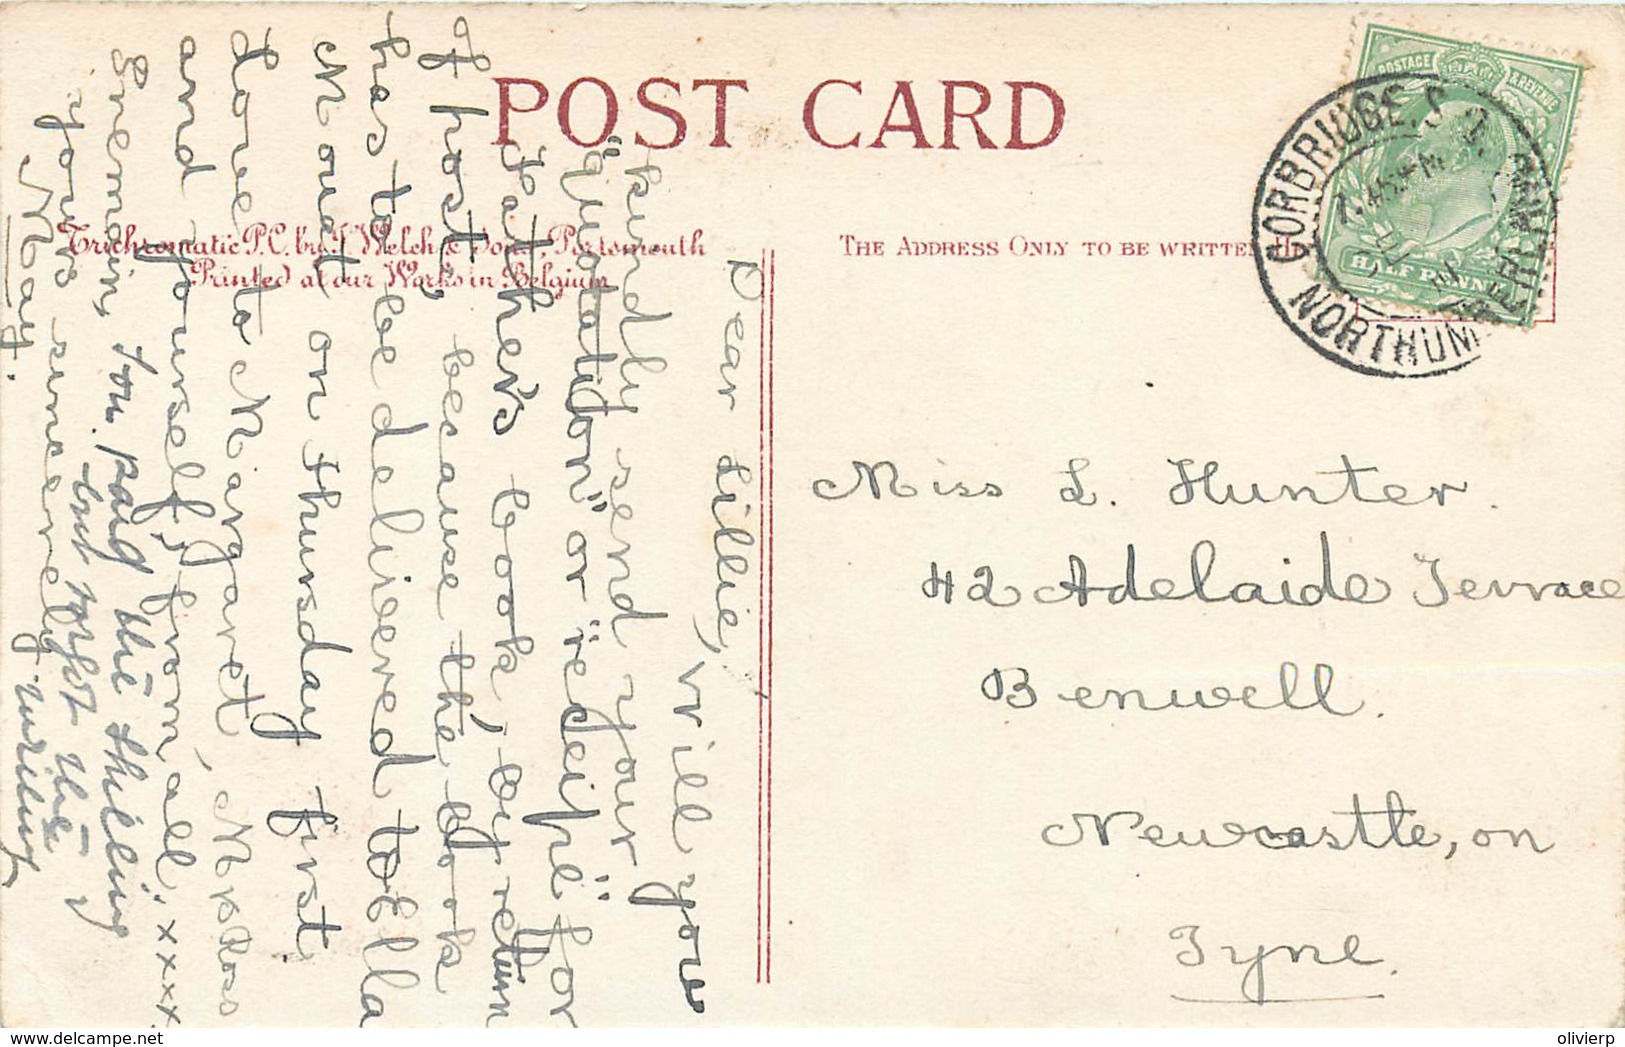 POST CARD
Trichromatic P.C. by J. Welch & Sons, Portsmouth
Printed at our Works in Belgium
THE ADDRESS ONLY TO BE WRITTEN
POSTAGE & REVENUE
HALF PENNY
CORBRIDGE. S.O.
NORTHUM
Dear Lillie, will you
kindly send your
"Quotation" or "recipe" for
Father's book, by return
of post, because the book
has to be delivered to Ella
Mouat on Thursday first.
Love to Margaret, Mrs Ross
and yourself, from all. xxxx
I remain,
yours sincerely
May.
You paid the shilling
but forgot the
writing
Miss L. Hunter.
42 Adelaide Terrace
Benwell.
Newcastle, on
Tyne.
olivierp